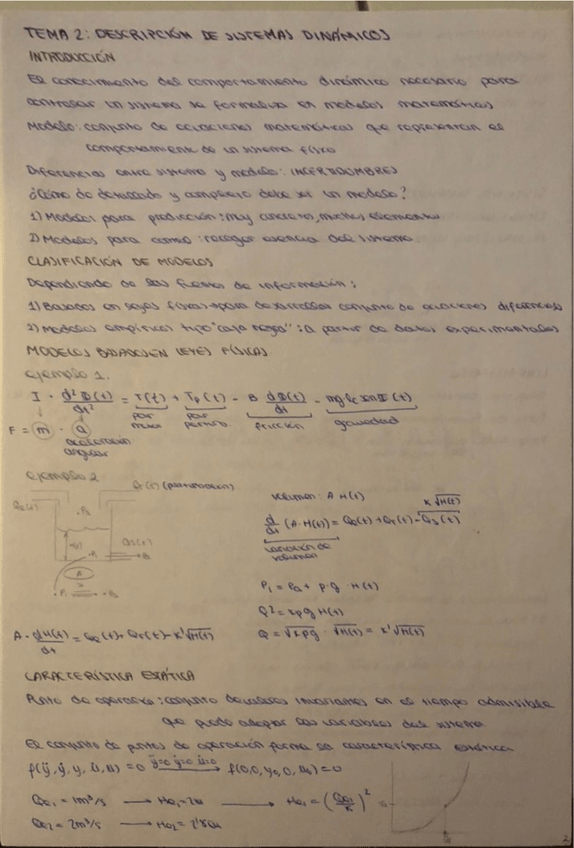 TEMA 2: DESCRIPCIÓN DE SISTEMAS DINÁMICOS
INTRODUCCIÓN
El conocimiento del comportamiento dinámico necesario para
controlar un sistema se formaliza en modelos matemáticos
Modelo: conjunto de ecuaciones matemáticas que representan el
comportamiento de un sistema físico
Diferencias entre sistema y modelo: INCERTIDUMBRES
¿Cómo de detallado y complejo debe ser un modelo?
1) Modelos para predicción: muy concretos, muchos elementos
2) Modelos para control: recoger esencia del sistema
CLASIFICACIÓN DE MODELOS
Dependiendo de las fuentes de información:
1) Basados en leyes físicas → para desarrollar conjunto de ecuaciones diferenciales
2) Modelos empíricos tipo "caja negra": a partir de datos experimentales
MODELOS BASADOS EN LEYES FÍSICAS
ejemplo 1.
I · d²Φ(t)/dt² = T(t) + Tp(t) - B dΦ(t)/dt - mg lc sen Φ(t)
par par fricción gravedad
F = m · a
aceleración
angular
ejemplo 2
Qr(t) (perturbación)
Qe(t)
H(t)
Qs(t)
A
volumen: A H(t)
k√H(t)
d/dt (A·H(t)) = Qe(t) + Qr(t) - Qs(t)
variación de
volumen
P₁ = P₀ + ρ·g · H(t)
Q² = kρg H(t)
Q = √kρg · √H(t) = k'√H(t)
A · dH(t)/dt = Qe(t) + Qr(t) - k'√H(t)
CARACTERÍSTICA ESTÁTICA
Punto de operación: conjunto de valores invariantes en el tiempo admisible
que puede adoptar las variables del sistema
El conjunto de puntos de operación forma la característica estática
f(ÿ, ẏ, y, u̇, u) = 0 → ÿ=0 ẏ=0 u̇=0 → f(0,0,y₀,0,u₀) = 0
Qe₁ = 1m³/s → H₀₁ → H₀₁ = (Qe₁/k)²
Qe₂ = 2m³/s → H₀₂
2